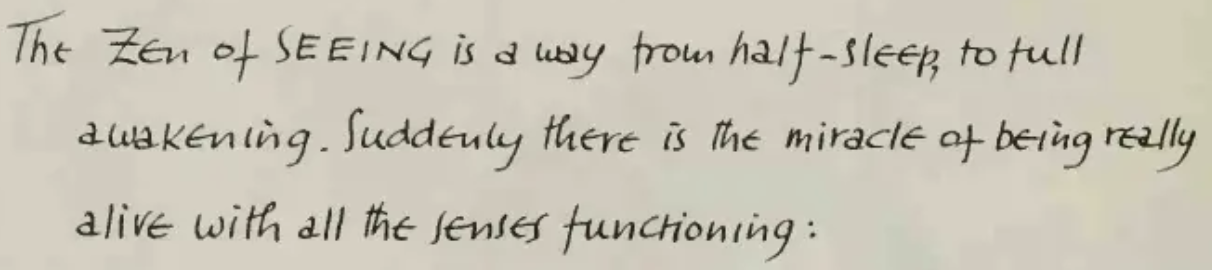 The Zen of SEEING is a way from half-sleep, to full
awakening. Suddenly there is the miracle of being really
alive with all the senses functioning: